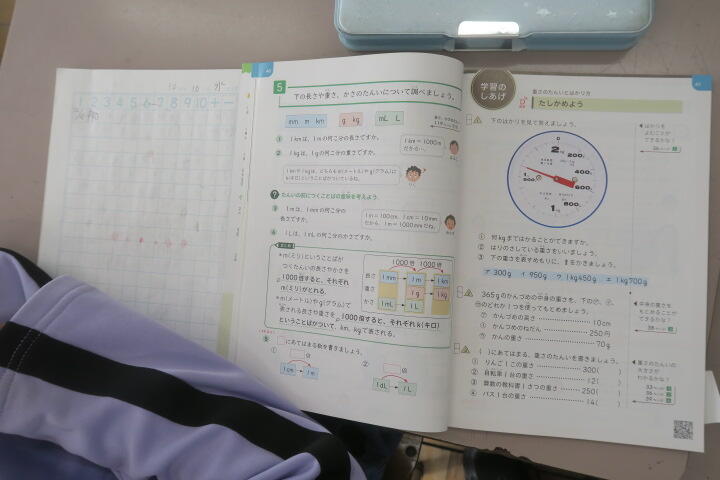 1 2 3 4 5 6 7 8 9 10 + -
5
下の長さや重さ、かさのたんいについて調べましょう。
mm m km
g kg
mL L
① 1kmは、1mの何こ分の長さですか。
② 1kgは、1gの何こ分の重さですか。
1km=1000m
だから…
たんいの前につくことばの意味を考えよう。
③ 1mは、1mmの何こ分の
長さですか。
1m=100cm、1cm=10mm
だから、1m=1000mmだね。
④ 1Lは、1mLの何こ分のかさですか。
まとめ
*m(ミリ)ということばが
つくたんいの長さやかさを
1000倍すると、それぞれ
m(ミリ)がとれる。
*m(メートル)やg(グラム)で
表される長さや重さを
1000倍すると、それぞれk(キロ)
ということばがついて、km、kgで表される。
1000倍 1000倍
長さ 1mm 1m 1km
重さ 1g 1kg
かさ 1mL 1L
にあてはまる数を書きましょう。
① 倍
1cm 1m
② 倍
1dL 1L
学習の
しあげ
重さのたんいとはかり方
たしかめよう
1 下のはかりを見て答えましょう。
0
2kg
200g
400g
600g
800g
1kg
① 何kgまではかることができますか。
② はりのさしている重さをいいましょう。
③ 下の重さを表すめもりに、↑をかきましょう。
ア 300g イ 950g ウ 1kg450g エ 1kg700g
2 365gのかんづめの中身の重さを、下の㋐、㋑、
㋒のどれか1つを使ってもとめましょう。
㋐ かんづめの高さ 10cm
㋑ かんづめのねだん 250円
㋒ かんの重さ 70g
3 ( )にあてはまる、重さのたんいを書きましょう。
① りんご1この重さ 300( )
② 自転車1台の重さ 12( )
③ 算数の教科書1さつの重さ 250( )
④ バス1台の重さ 14( )
はかりを
よむことが
できるかな?
中身の重さを
もとめることが
できるかな?
重さのたんいの
大きさが
わかるかな?